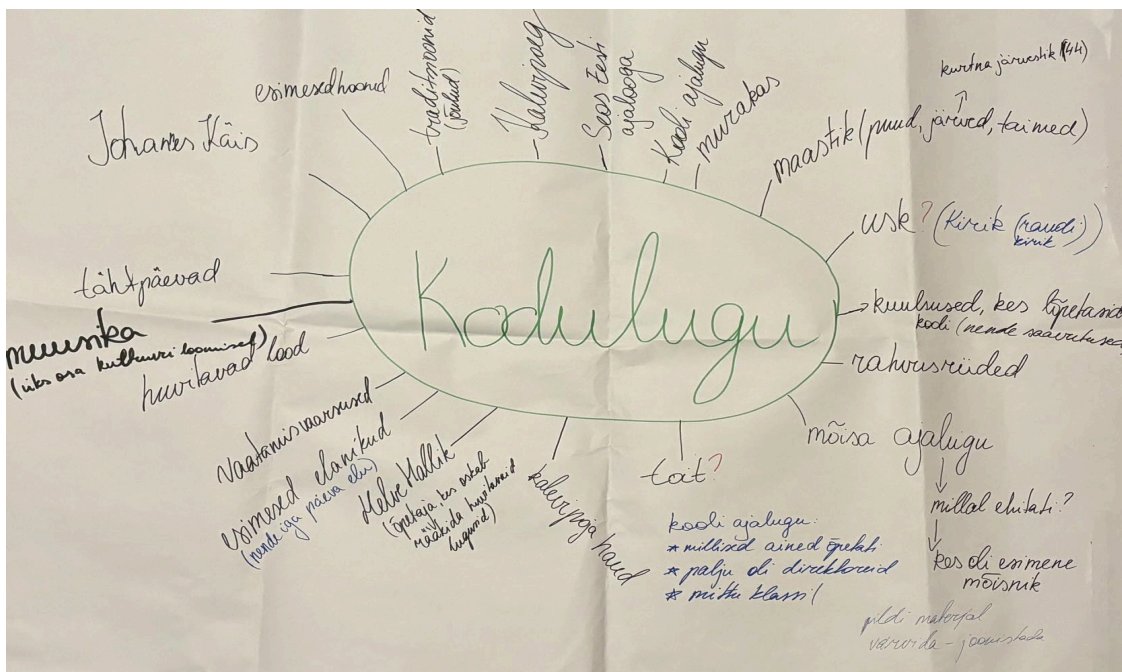 Kodulugu
Johannes Käis
esimesed hooned
traditsioonid
(jõulud)
Kalevipoeg
Seos Eesti
ajalooga
Kooli ajalugu
murakas
kurtna järvestik (44)
maastik (puud, järved, taimed)
usk? (Kirik (raudi
kirik))
kuulsused, kes lõpetasid
kooli (nende saavutused)
rahvusriided
mõisa ajalugu
millal ehitati?
kes oli esimene
mõisnik
pildi materjal
värvida - joonistada
toit?
kooli ajalugu:
* millised ained õpetati
* palju oli direktoreid
* mittu klassi
kalevipoja haud
Helve Hallik
(õpetaja, kes oskab
rääkida huvitavaid
lugusid)
esimesed elanikud
(nende iga päeva elu)
vaatamisväärsused
huvitavad lood
muusika
(üks osa kultuuri loomisel)
tähtpäevad